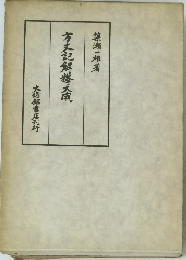 簗瀬一雄著
方丈記解釈大成
大修館書店刊行